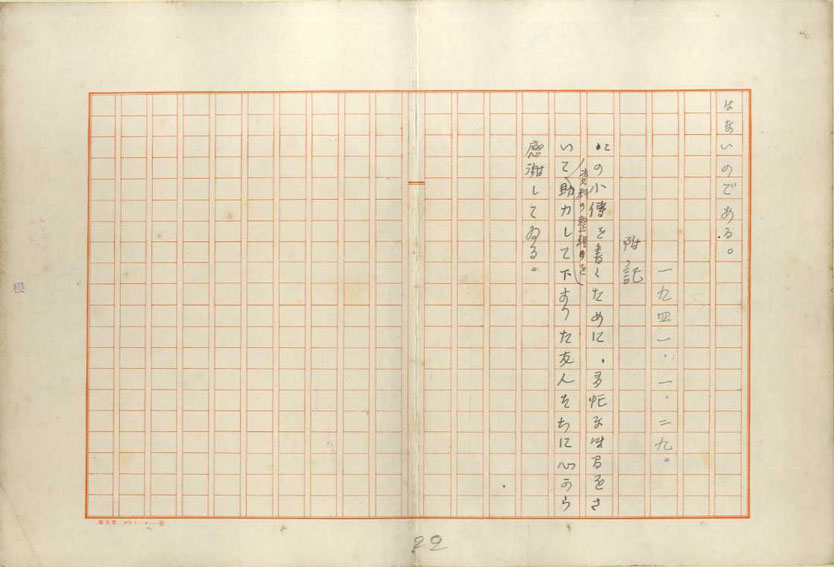 はないのである。
一九四一・一・二九。
附記
この小傳を書くために、多忙な時間をさ
資料の整理を
いて助力して下すつた友人たちに心から
感謝してゐる。
22